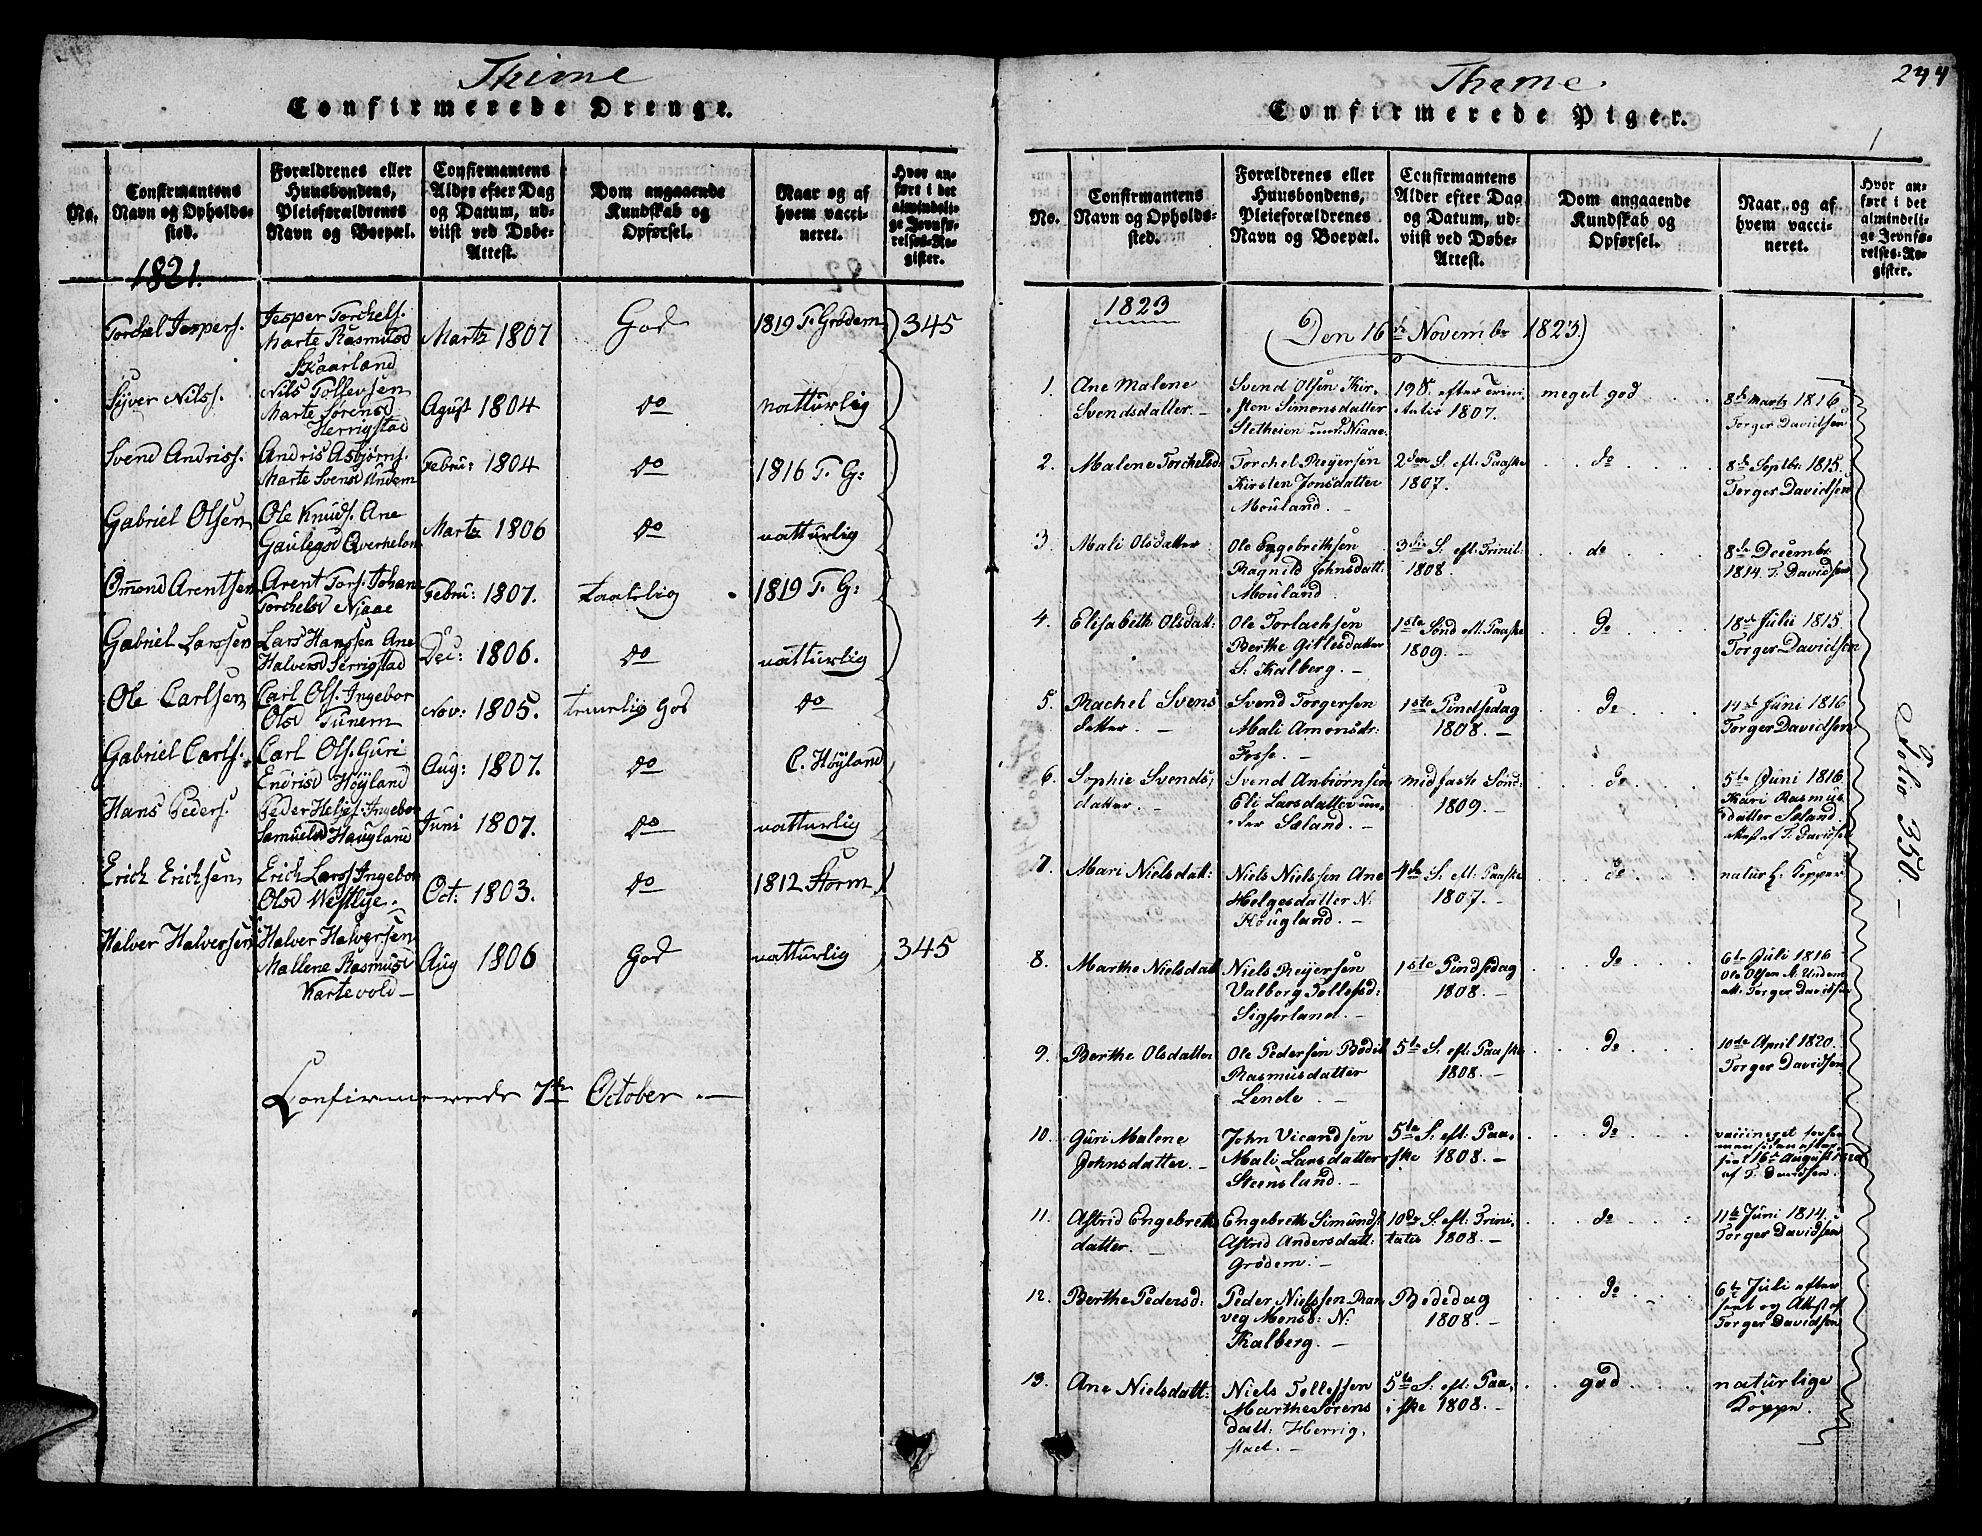 Thime
Confirmerede Drenge.
No.
Confirmantens Navn og Opholdssted.
Forældrenes eller Huusbondens, Pleieforældrenes Navn og Boepæl.
Confirmantens Alder efter Dag og Datum, udviist ved Døbe-Attest.
Dom angaaende Kundskab og Opførsel.
Naar og af hvem vaccineret.
Hvor anført i det almindelige Jevnførelses-Register.
1821.
Torchel Jespers. Jesper Torchels. Marte Rasmusd Skaarland Martz 1807 God 1819 T. Grødem 345
Syver Nilss. Nils Tollevsen Marte Sørensd Herrigstad Agust 1804 do natturlig
Svend Andriss. Andris Asbjørns. Marte Svensd Undem Febru: 1804 do 1816 T. G:
Gabriel Olsen Ole Knuds. Ane Gaulegsd Qverhelen Martz 1806 do natturlig
Omond Arentsen Arent Tors. Johan Torchelsd Niaae Febru: 1807. taalelig 1819 T. G:
Gabriel Larssen Lars Hanssen Ane Halversd Serrigstad Dec: 1806. do natturlig
Ole Carlsen Carl Ols. Ingebor Olsd Tunem Nov: 1805. temelig God do
Gabriel Carls. Carl Ols. Guri Endrisd Høyland Aug: 1807. do C. Høyland
Hans Peders. Peder Heljes. Ingebor Samuelsd Haugland Juni 1807. do natturlig
Erich Erichsen Erich Larss Ingebor Olsd Westlye. Oct: 1803. do 1812 Storm
Halver Halversen Halver Halversen Mallene Rasmusd Kartevold Aug 1806 God natturlig 345
Confirmerede 7de October.
Thime.
244
Confirmerede Piger.
No.
Confirmantens Navn og Opholdssted.
Forældrenes eller Huusbondens, Pleieforældrenes Navn og Boepæl.
Confirmantens Alder efter Dag og Datum, udviist ved Døbe-Attest.
Dom angaaende Kundskab og Opførsel.
Naar og af hvem vaccineret.
Hvor anført i det almindelige Jevnførelses-Register.
1823
Den 16de Novembr 1823.
1. Ane Malene Svendsdatter. Svend Olsen Kirsten Simonsdatter Sletheien und. Niaae. 19 S. efter Trinitatis 1807. meget god 8de Martz 1816 Torger Davidsen
2. Malene Torchelsd. Torchel Reyersen Kirsten Jonsdatter Mouland. 2den S. eft: Paaske 1807. do 8de Septbr. 1815. Torger Davidsen
3. Mali Olsdatter Ole Engebrethsen Ragnild Johnsdatt: Mouland. 3die S. eft: Trinit: 1808. do 8de Decembr. 1814. T. Davidsen
4. Elisabeth Olsdatt: Ole Torlachsen Berthe Gitlesdatter S. Kalberg. 1ste Sønd eft: Paaske 1809. do 18de Julii 1815. Torger Davidsen
5. Rachel Svensdatter. Svend Torgersen Mali Amonsdr: Fosse. 1ste Pindsedag 1808. do 14de Juni 1816 Torger Davidsen
6. Sophie Svendsdatter. Svend Anbiørnsen Eli Larsdatter under Sæland. Midfaste Sønd: 1809. do 5te Juni 1816 Kari Rasmusdatter Sæland. Attest af T. Davidsen
7. Mari Nielsdatt: Niels Nielssen Ane Helgesdatter N. Hougland. 4de S. ef: Paaske 1807. do naturl. Kopper
8. Marthe Nielsdatt. Niels Reyersen Valborg Tollefsd: Sigferland. 1ste Pindsedag 1808. do 6te Juli 1816 Ole Olsen N. Undem att. Torger Davidsen
9. Berthe Olsdatter Ole Pedersen Bodil Rasmusdatter Lende. 5te S. eft: Paaske 1808. do 10de April 1820. Torger Davidsen
10. Guri Malene Johnsdatter. John Vicandsen Mali Larsdatter Steensland. 5te S. eft: Paaske 1808. do 16de August af T. Davidsen.
11. Astrid Engebrethsdatter. Engebreth Simunds. Astrid Andersdatt: Grødem. 10de S. eft: Trinitatis 1808. do 11te Juni 1814. Torger Davidsen
12. Berthe Pedersd: Peder Nielssen Ranveg Monsd: N: Kalberg. Bededag 1808. do 6te Juli eftersent og Attst af Torger Davidsen
13. Ane Nielsdatt: Niels Tollessen Marthe Sørensdatt: Herrigstaet. 5te S. eft: Paaske 1808. god naturlige Koppe.
Folio 350.